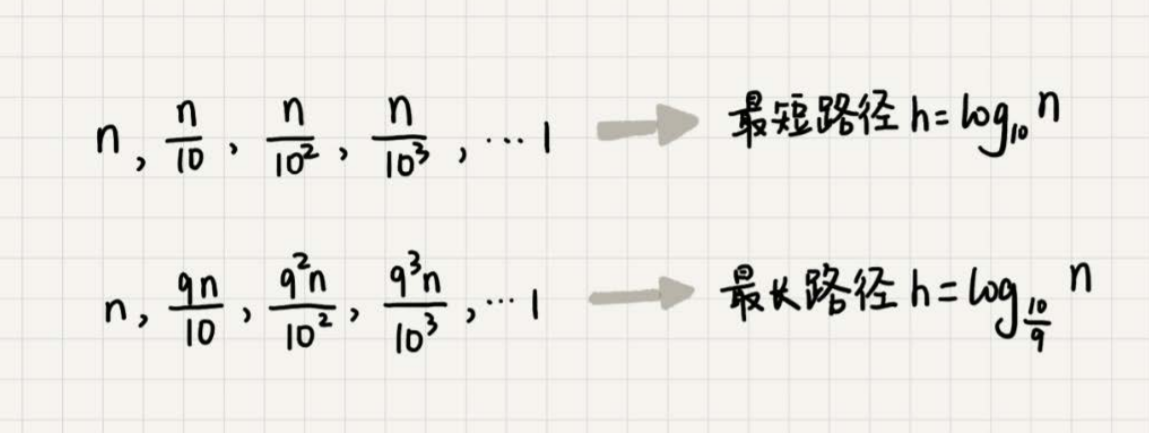 n, n/10, n/10², n/10³, ⋯ 1 最短路径 h = log₁₀ n
n, 9n/10, 9²n/10², 9³n/10³, ⋯ 1 最长路径 h = log_(10/9) n